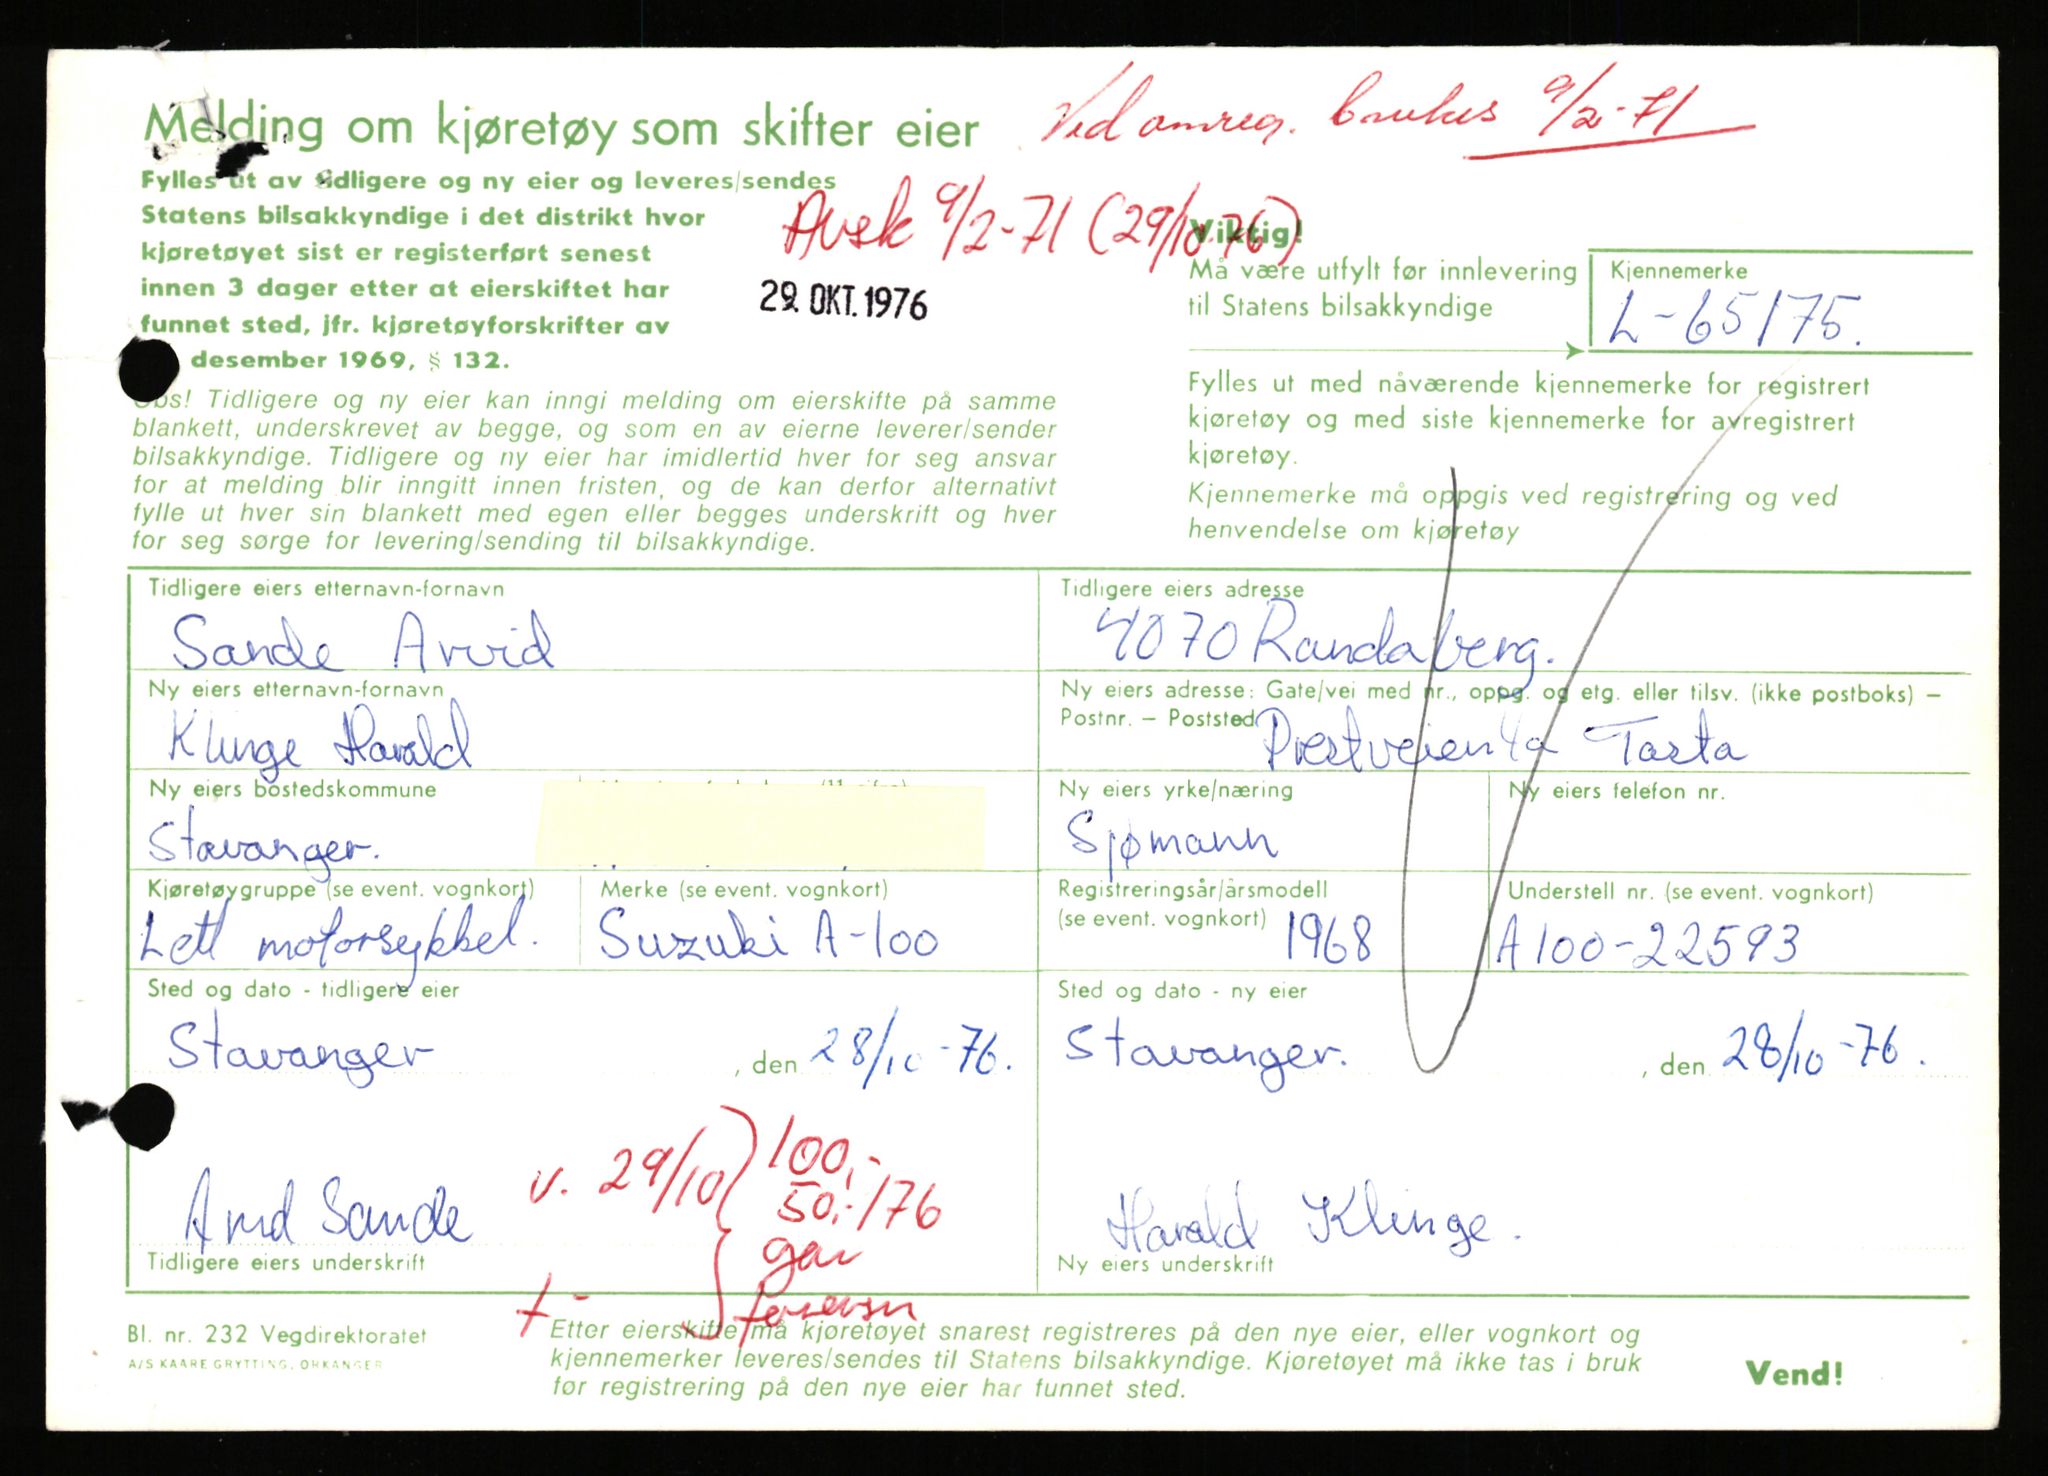 Melding om kjøretøy som skifter eier
Ved omreg. brukes 9/2-71
Fylles ut av tidligere og ny eier og leveres/sendes
Statens bilsakkyndige i det distrikt hvor
kjøretøyet sist er registerført senest
innen 3 dager etter at eierskiftet har
funnet sted, jfr. kjøretøyforskrifter av
desember 1969, § 132.
Avsk 9/2-71 (29/10-76)
29. OKT. 1976
Viktig!
Må være utfylt før innlevering
til Statens bilsakkyndige
Kjennemerke
L-65175.
Fylles ut med nåværende kjennemerke for registrert
kjøretøy og med siste kjennemerke for avregistrert
kjøretøy.
Kjennemerke må oppgis ved registrering og ved
henvendelse om kjøretøy
Obs! Tidligere og ny eier kan inngi melding om eierskifte på samme
blankett, underskrevet av begge, og som en av eierne leverer/sender
bilsakkyndige. Tidligere og ny eier har imidlertid hver for seg ansvar
for at melding blir inngitt innen fristen, og de kan derfor alternativt
fylle ut hver sin blankett med egen eller begges underskrift og hver
for seg sørge for levering/sending til bilsakkyndige.
Tidligere eiers etternavn-fornavn
Sande Arvid
Tidligere eiers adresse
4070 Randaberg.
Ny eiers etternavn-fornavn
Klinge Harald
Ny eiers adresse: Gate/vei med nr., oppg. og etg. eller tilsv. (ikke postboks) –
Postnr. – Poststed
Prestveien 4a Tasta
Ny eiers bostedskommune
Stavanger.
Ny eiers yrke/næring
Sjømann
Ny eiers felefon nr.
Kjøretøygruppe (se event. vognkort)
Lett motorsykkel.
Merke (se event. vognkort)
Suzuki A-100
Registreringsår/årsmodell
(se event. vognkort)
1968
Understell nr. (se event. vognkort)
A100-22593
Sted og dato - tidligere eier
Stavanger , den 28/10-76.
Sted og dato - ny eier
Stavanger. , den 28/10-76.
v. 29/10
100,-
50,-/76
Arvid Sande
Tidligere eiers underskrift
Harald Klinge.
Ny eiers underskrift
Bl. nr. 232 Vegdirektoratet
A/S KAARE GRYTTING, ORKANGER
Etter eierskifte må kjøretøyet snarest registreres på den nye eier, eller vognkort og
kjennemerker leveres/sendes til Statens bilsakkyndige. Kjøretøyet må ikke tas i bruk
før registrering på den nye eier har funnet sted.
Vend!